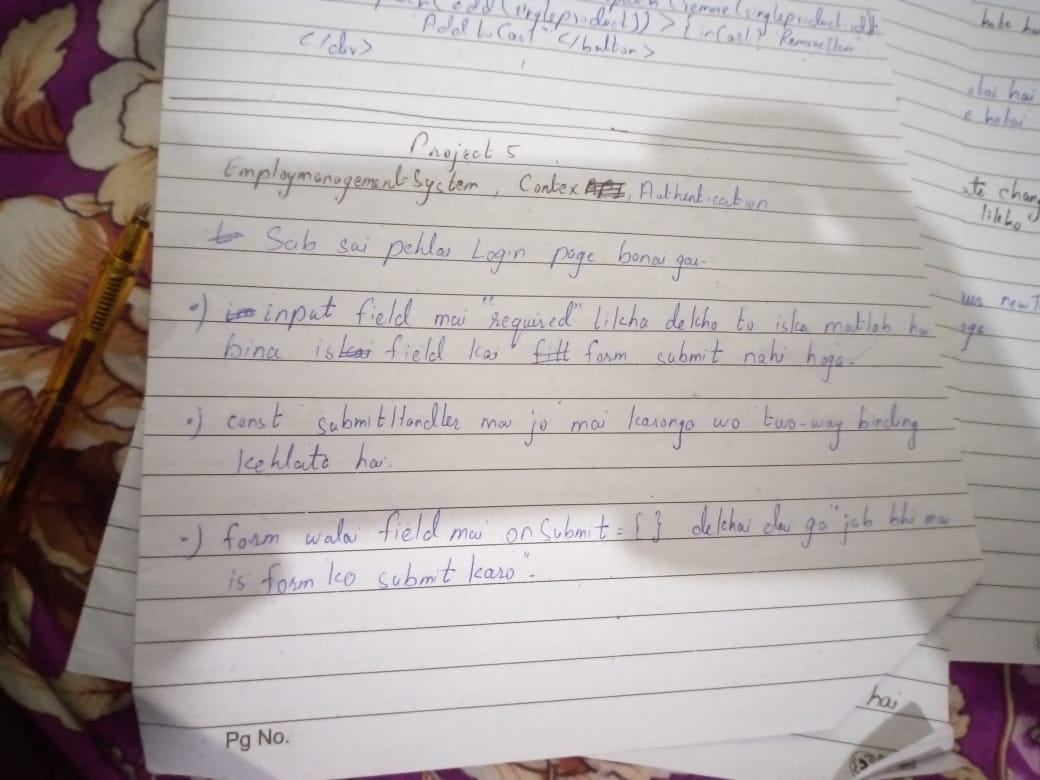 add(singleproduct)) > {inCart? Remove Item
Add to Cart" </button>
</div>
Project 5
Employmanagement System, Contex API, Authentication
Sab sai pehlai Login page banai gau-
•) input field mai "required" likha dekho to iska matlab hu
bina iskai field kai fill form submit nahi hoga-
•) const submitHandler mai jo mai karonga wo two-way binding
kehlata hai.
-) form walai field mai onSubmit = { } dekhai dai ga "jab bhi mai
is form ko submit karo"-
hai
Pg No.
hai
e
likho
new